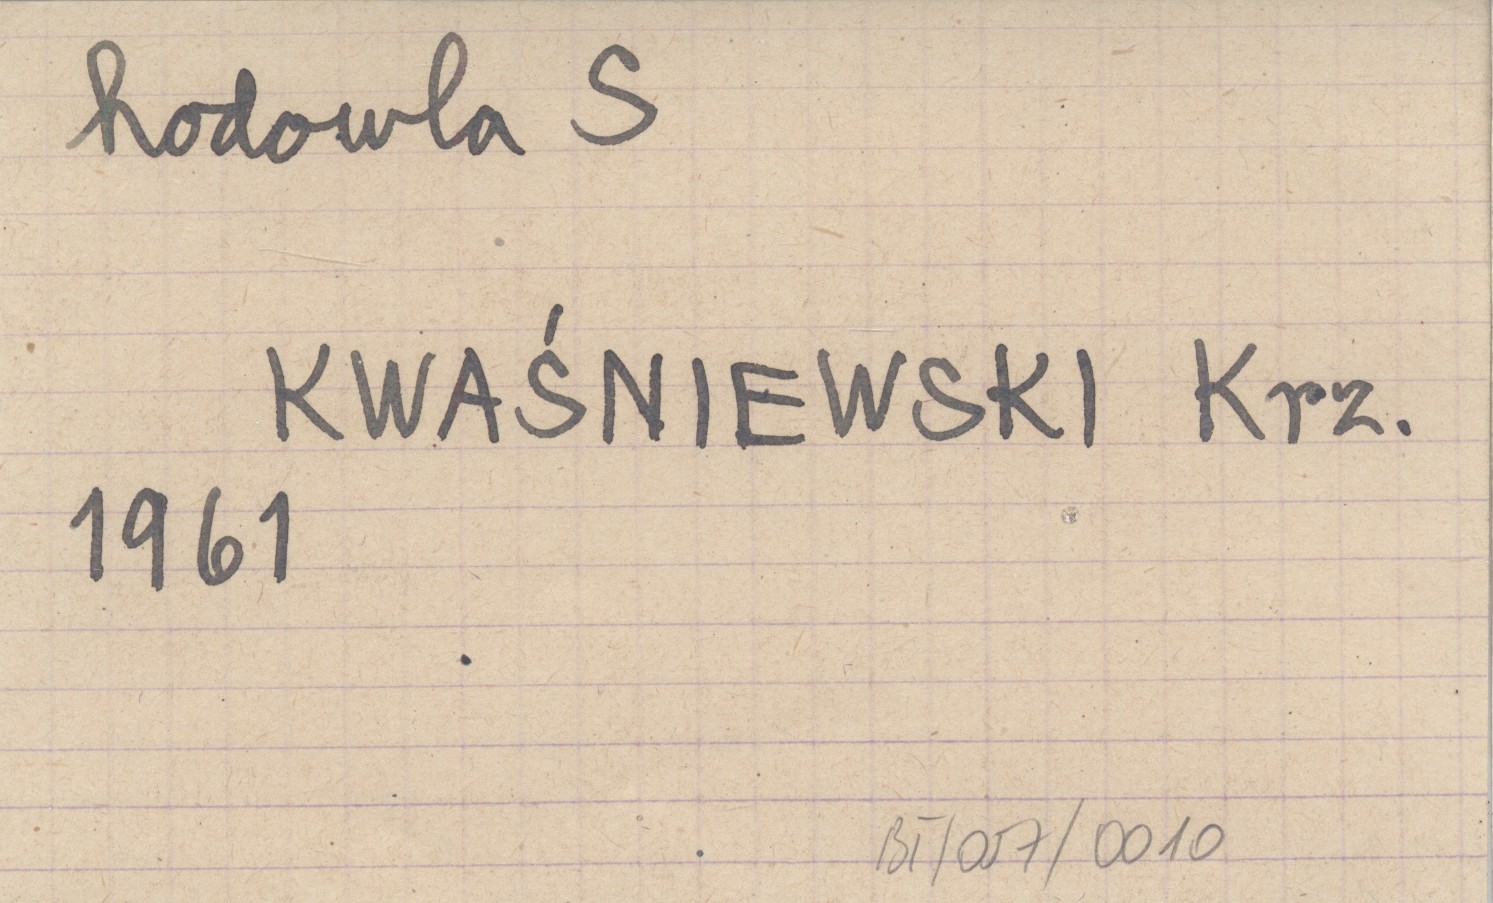 hodowla S
KWAŚNIEWSKI Krz.
1961
BI/057/0010